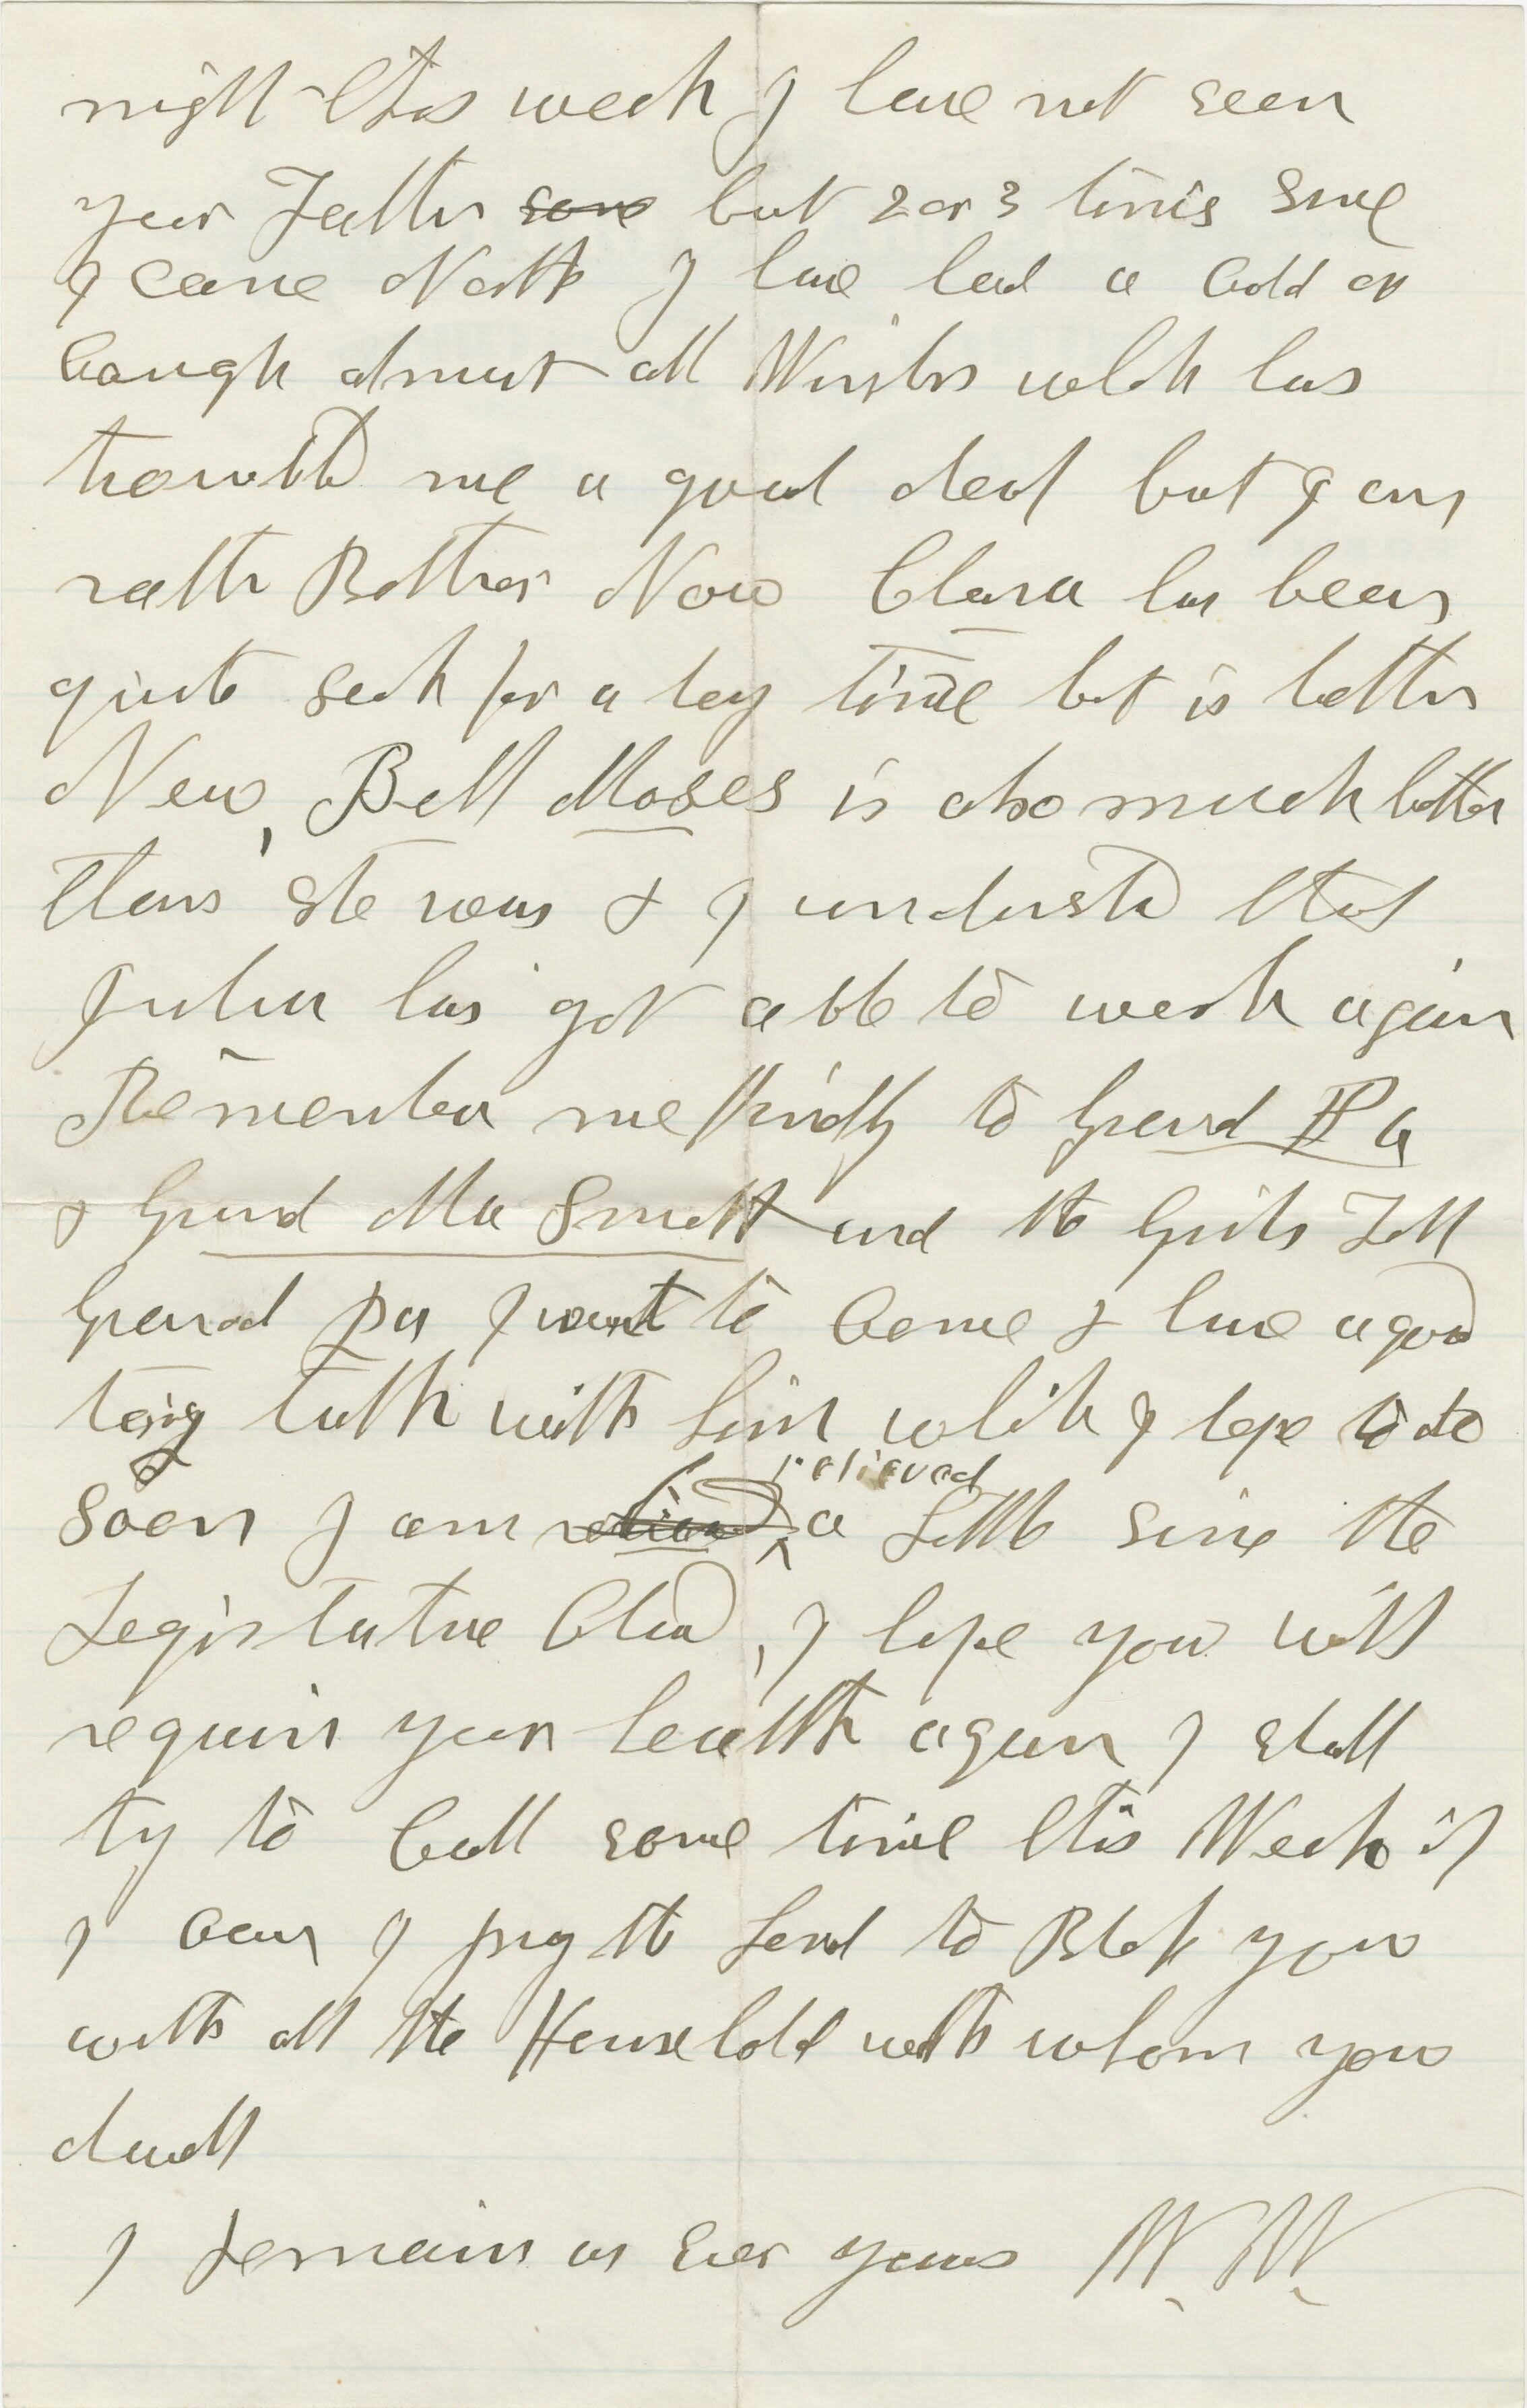 night this week I have not seen
your Father some but 2 or 3 times since
I came North I have had a Cold or
Cough almost all Winter which has
troubled me a good deal but I am
rather Better Now Clara has been
quite sick for a long time but is better
Now, Bell Moses is also much better
than she was & I understand that
Julia has got able to work again
Remember me Kindly to Grand Pa
& Grand Ma Smith and the Girls Tell
Grand pa I want to Come & have a good
long talk with him which I hope to do
soon I am relieved relieved a little since the
Legislature Closed, I hope you will
requir your health again I shall
try to Call some time this Week if
I can I pray the Lord to Bless you
with all the Household with whom you
dwell
I remain as Ever yours W. W.